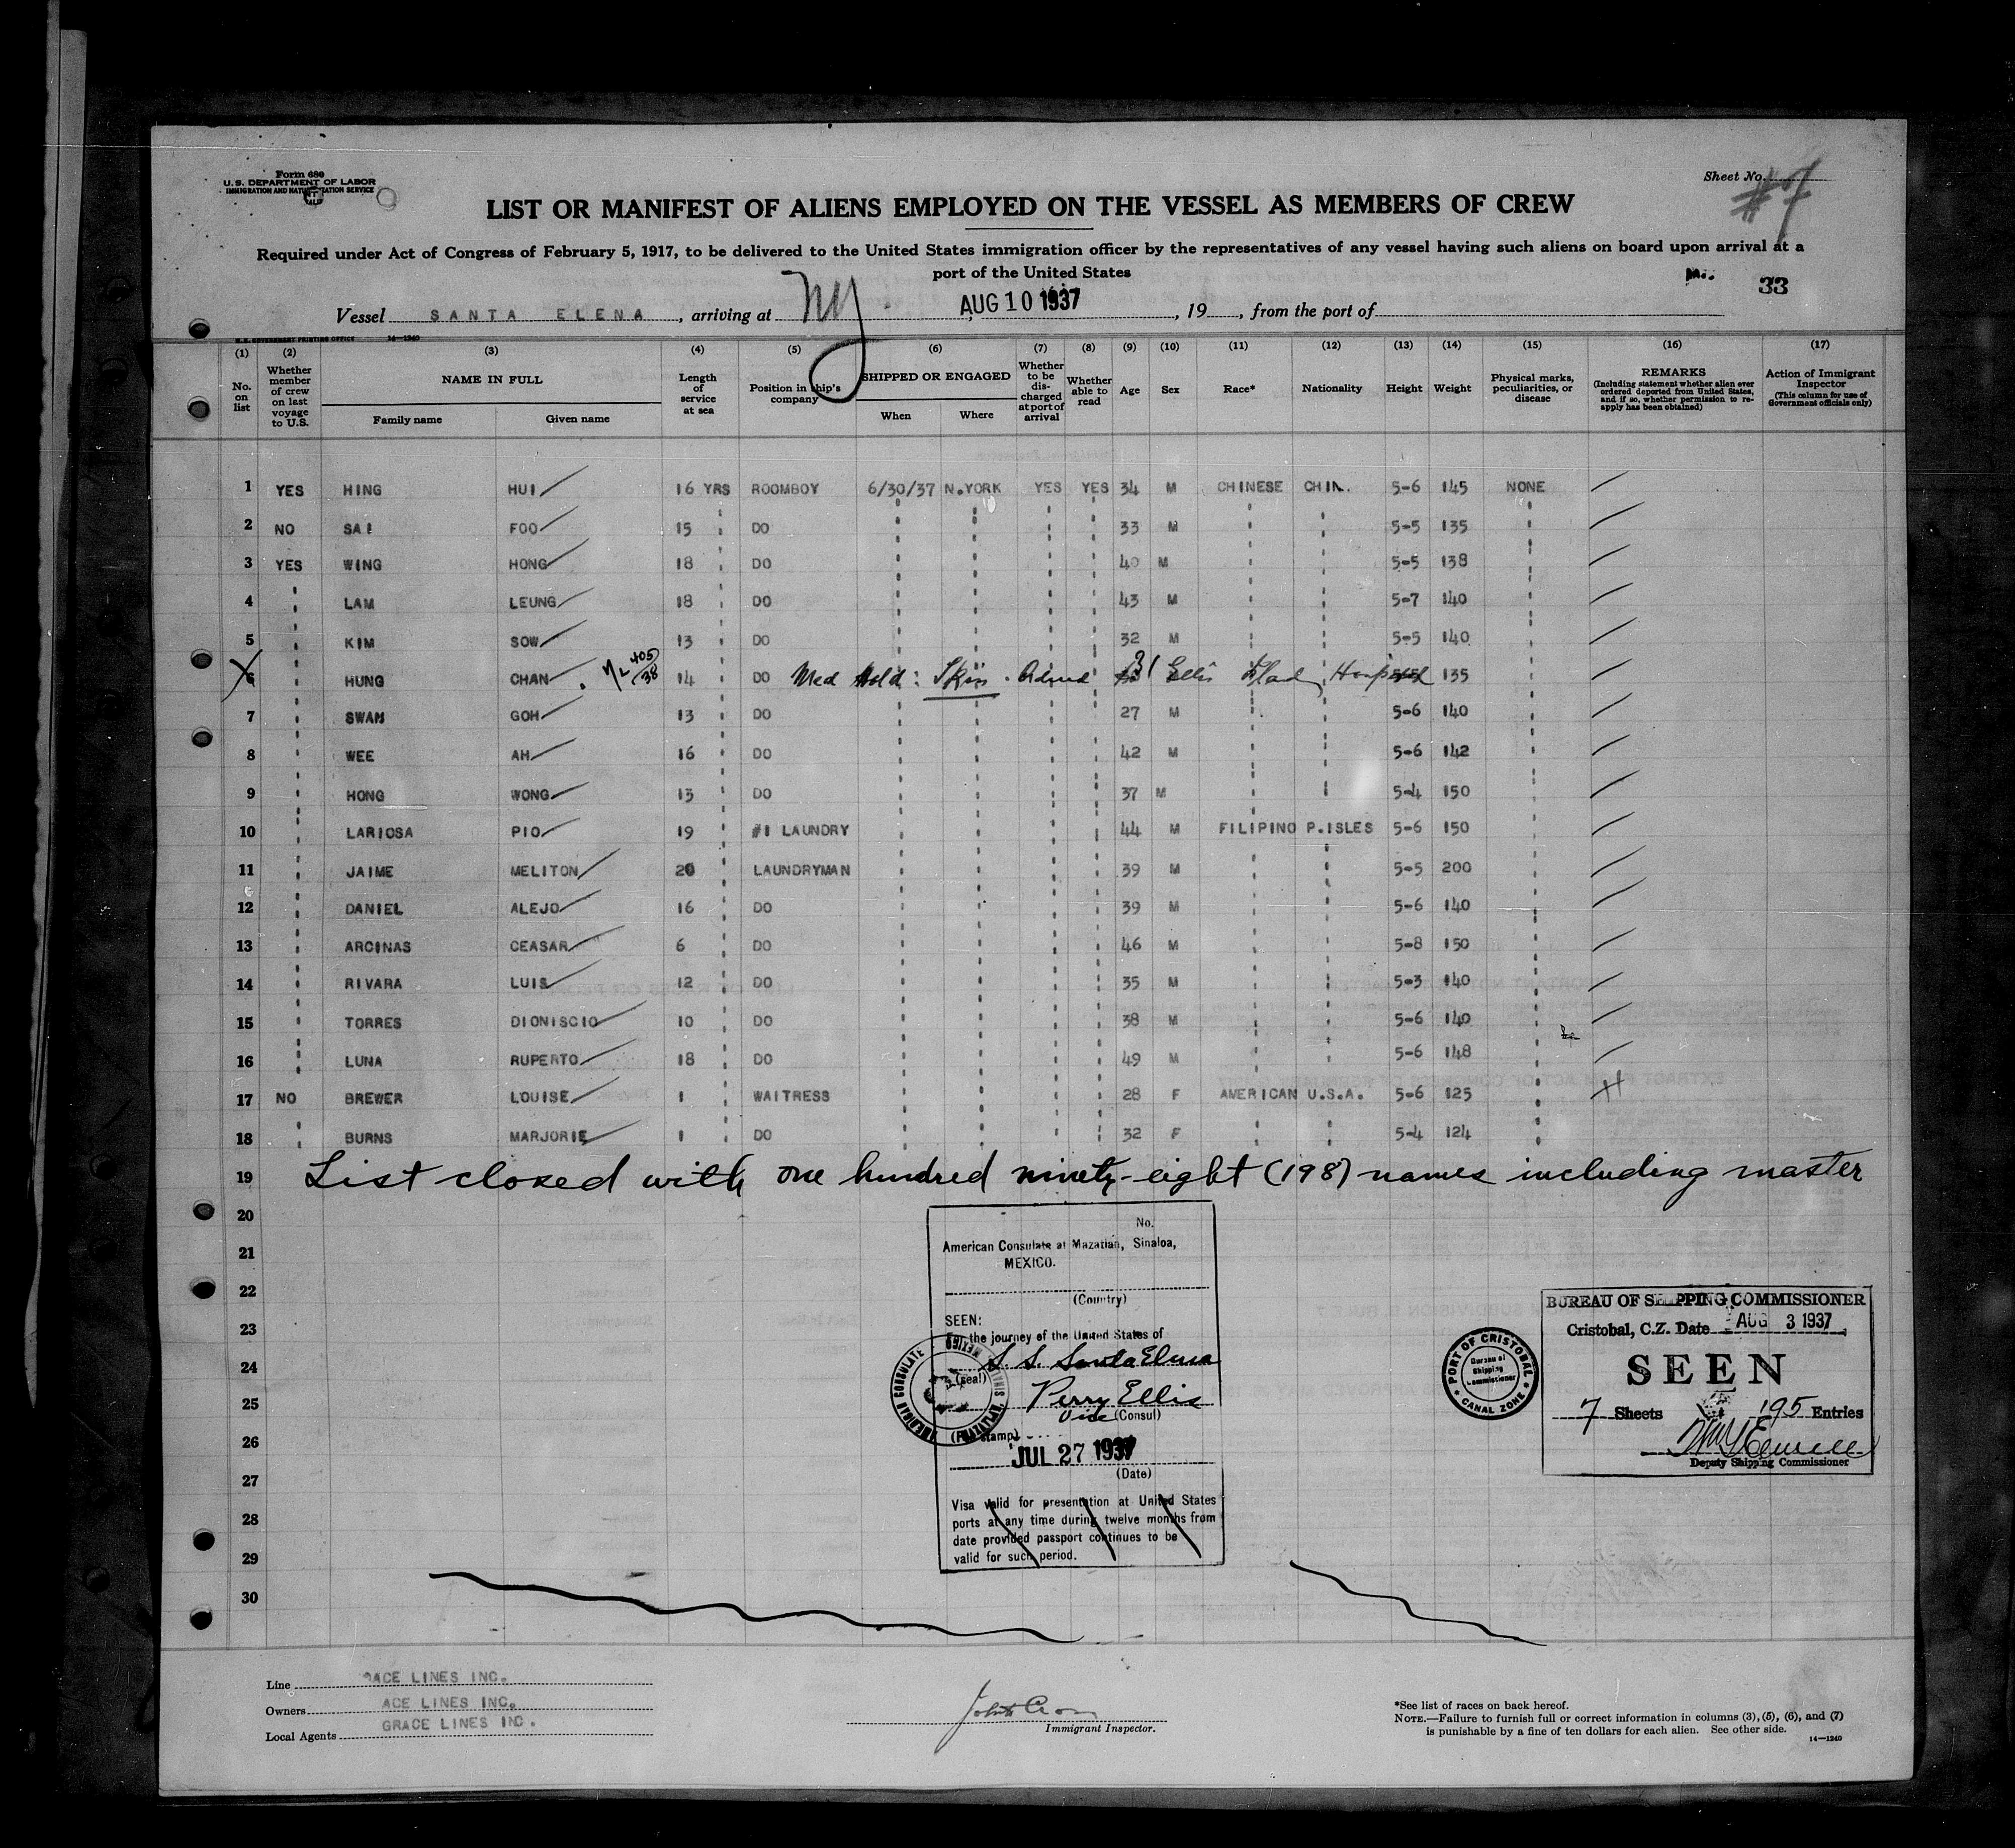 Form 680
U.S. DEPARTMENT OF LABOR
IMMIGRATION AND NATURALIZATION SERVICE
Sheet No. #7
LIST OR MANIFEST OF ALIENS EMPLOYED ON THE VESSEL AS MEMBERS OF CREW
Required under Act of Congress of February 5, 1917, to be delivered to the United States immigration officer by the representatives of any vessel having such aliens on board upon arrival at a
port of the United States
33
Vessel SANTA ELENA, arriving at NY. AUG 10 1937, 19, from the port of
U.S. GOVERNMENT PRINTING OFFICE 14-1240
(1) (2) (3) (4) (5) (6) (7) (8) (9) (10) (11) (12) (13) (14) (15) (16) (17)
No. on list
Whether member of crew on last voyage to U.S.
NAME IN FULL
Family name Given name
Length of service at sea
Position in ship's company
SHIPPED OR ENGAGED
When Where
Whether to be discharged at port of arrival
Whether able to read
Age
Sex
Race*
Nationality
Height
Weight
Physical marks, peculiarities, or disease
REMARKS
(Including statement whether alien ever ordered deported from United States, and if so, whether permission to reapply has been obtained)
Action of Immigrant Inspector
(This column for use of Government officials only)
1 YES HING HUI 16 YRS ROOMBOY 6/30/37 N.YORK YES YES 34 M CHINESE CHIN. 5-6 145 NONE
2 NO SAI FOO 15 " DO " " " " 33 M " " 5-5 135 "
3 YES WING HONG 18 " DO " " " " 40 M " " 5-5 138 "
4 " LAM LEUNG 18 " DO " " " " 43 M " " 5-7 140 "
5 " KIM SOW 13 " DO " " " " 32 M " " 5-5 140 "
6 " HUNG CHAN 405/38 14 " DO Med Hold: Skin. Admd 31 Ellis Island Hospital 135 "
7 " SWAN GOH 13 " DO " " " " 27 M " " 5-6 140 "
8 " WEE AH 16 " DO " " " " 42 M " " 5-6 142 "
9 " HONG WONG 13 " DO " " " " 37 M " " 5-4 150 "
10 " LARIOSA PIO 19 " #1 LAUNDRY " " " " 44 M FILIPINO P.ISLES 5-6 150 "
11 " JAIME MELITON 20 " LAUNDRYMAN " " " " 39 M " " 5-5 200 "
12 " DANIEL ALEJO 16 " DO " " " " 39 M " " 5-6 140 "
13 " ARCINAS CEASAR 6 " DO " " " " 46 M " " 5-8 150 "
14 " RIVARA LUIS 12 " DO " " " " 35 M " " 5-3 140 "
15 " TORRES DIONISCIO 10 " DO " " " " 38 M " " 5-6 140 "
16 " LUNA RUPERTO 18 " DO " " " " 49 M " " 5-6 148 "
17 NO BREWER LOUISE 1 " WAITRESS " " " " 28 F AMERICAN U.S.A. 5-6 125 "
18 " BURNS MARJORIE 1 " DO " " " " 32 F " " 5-4 124 "
19 List closed with one hundred ninety-eight (198) names including master
20
21
22
23
24
25
26
27
28
29
30
No.
American Consulate at Mazatlan, Sinaloa,
MEXICO.
(Country)
SEEN:
For the journey of the United States of
S. S. Santa Elena
(seal)
Perry Ellis
Vice (Consul)
(Fee stamp)
JUL 27 1937
(Date)
Visa valid for presentation at United States
ports at any time during twelve months from
date provided passport continues to be
valid for such period.
AMERICAN CONSULATE MAZATLAN, SINALOA, MEXICO
PORT OF CRISTOBAL
Bureau of
Shipping
Commissioner
CANAL ZONE
BUREAU OF SHIPPING COMMISSIONER
Cristobal, C.Z. Date AUG 3 1937
SEEN
7 Sheets 195 Entries
Deputy Shipping Commissioner
Line GRACE LINES INC.
Owners ACE LINES INC.
Local Agents GRACE LINES INC.
Immigrant Inspector.
*See list of races on back hereof.
NOTE.—Failure to furnish full or correct information in columns (3), (5), (6), and (7)
is punishable by a fine of ten dollars for each alien. See other side.
14—1240